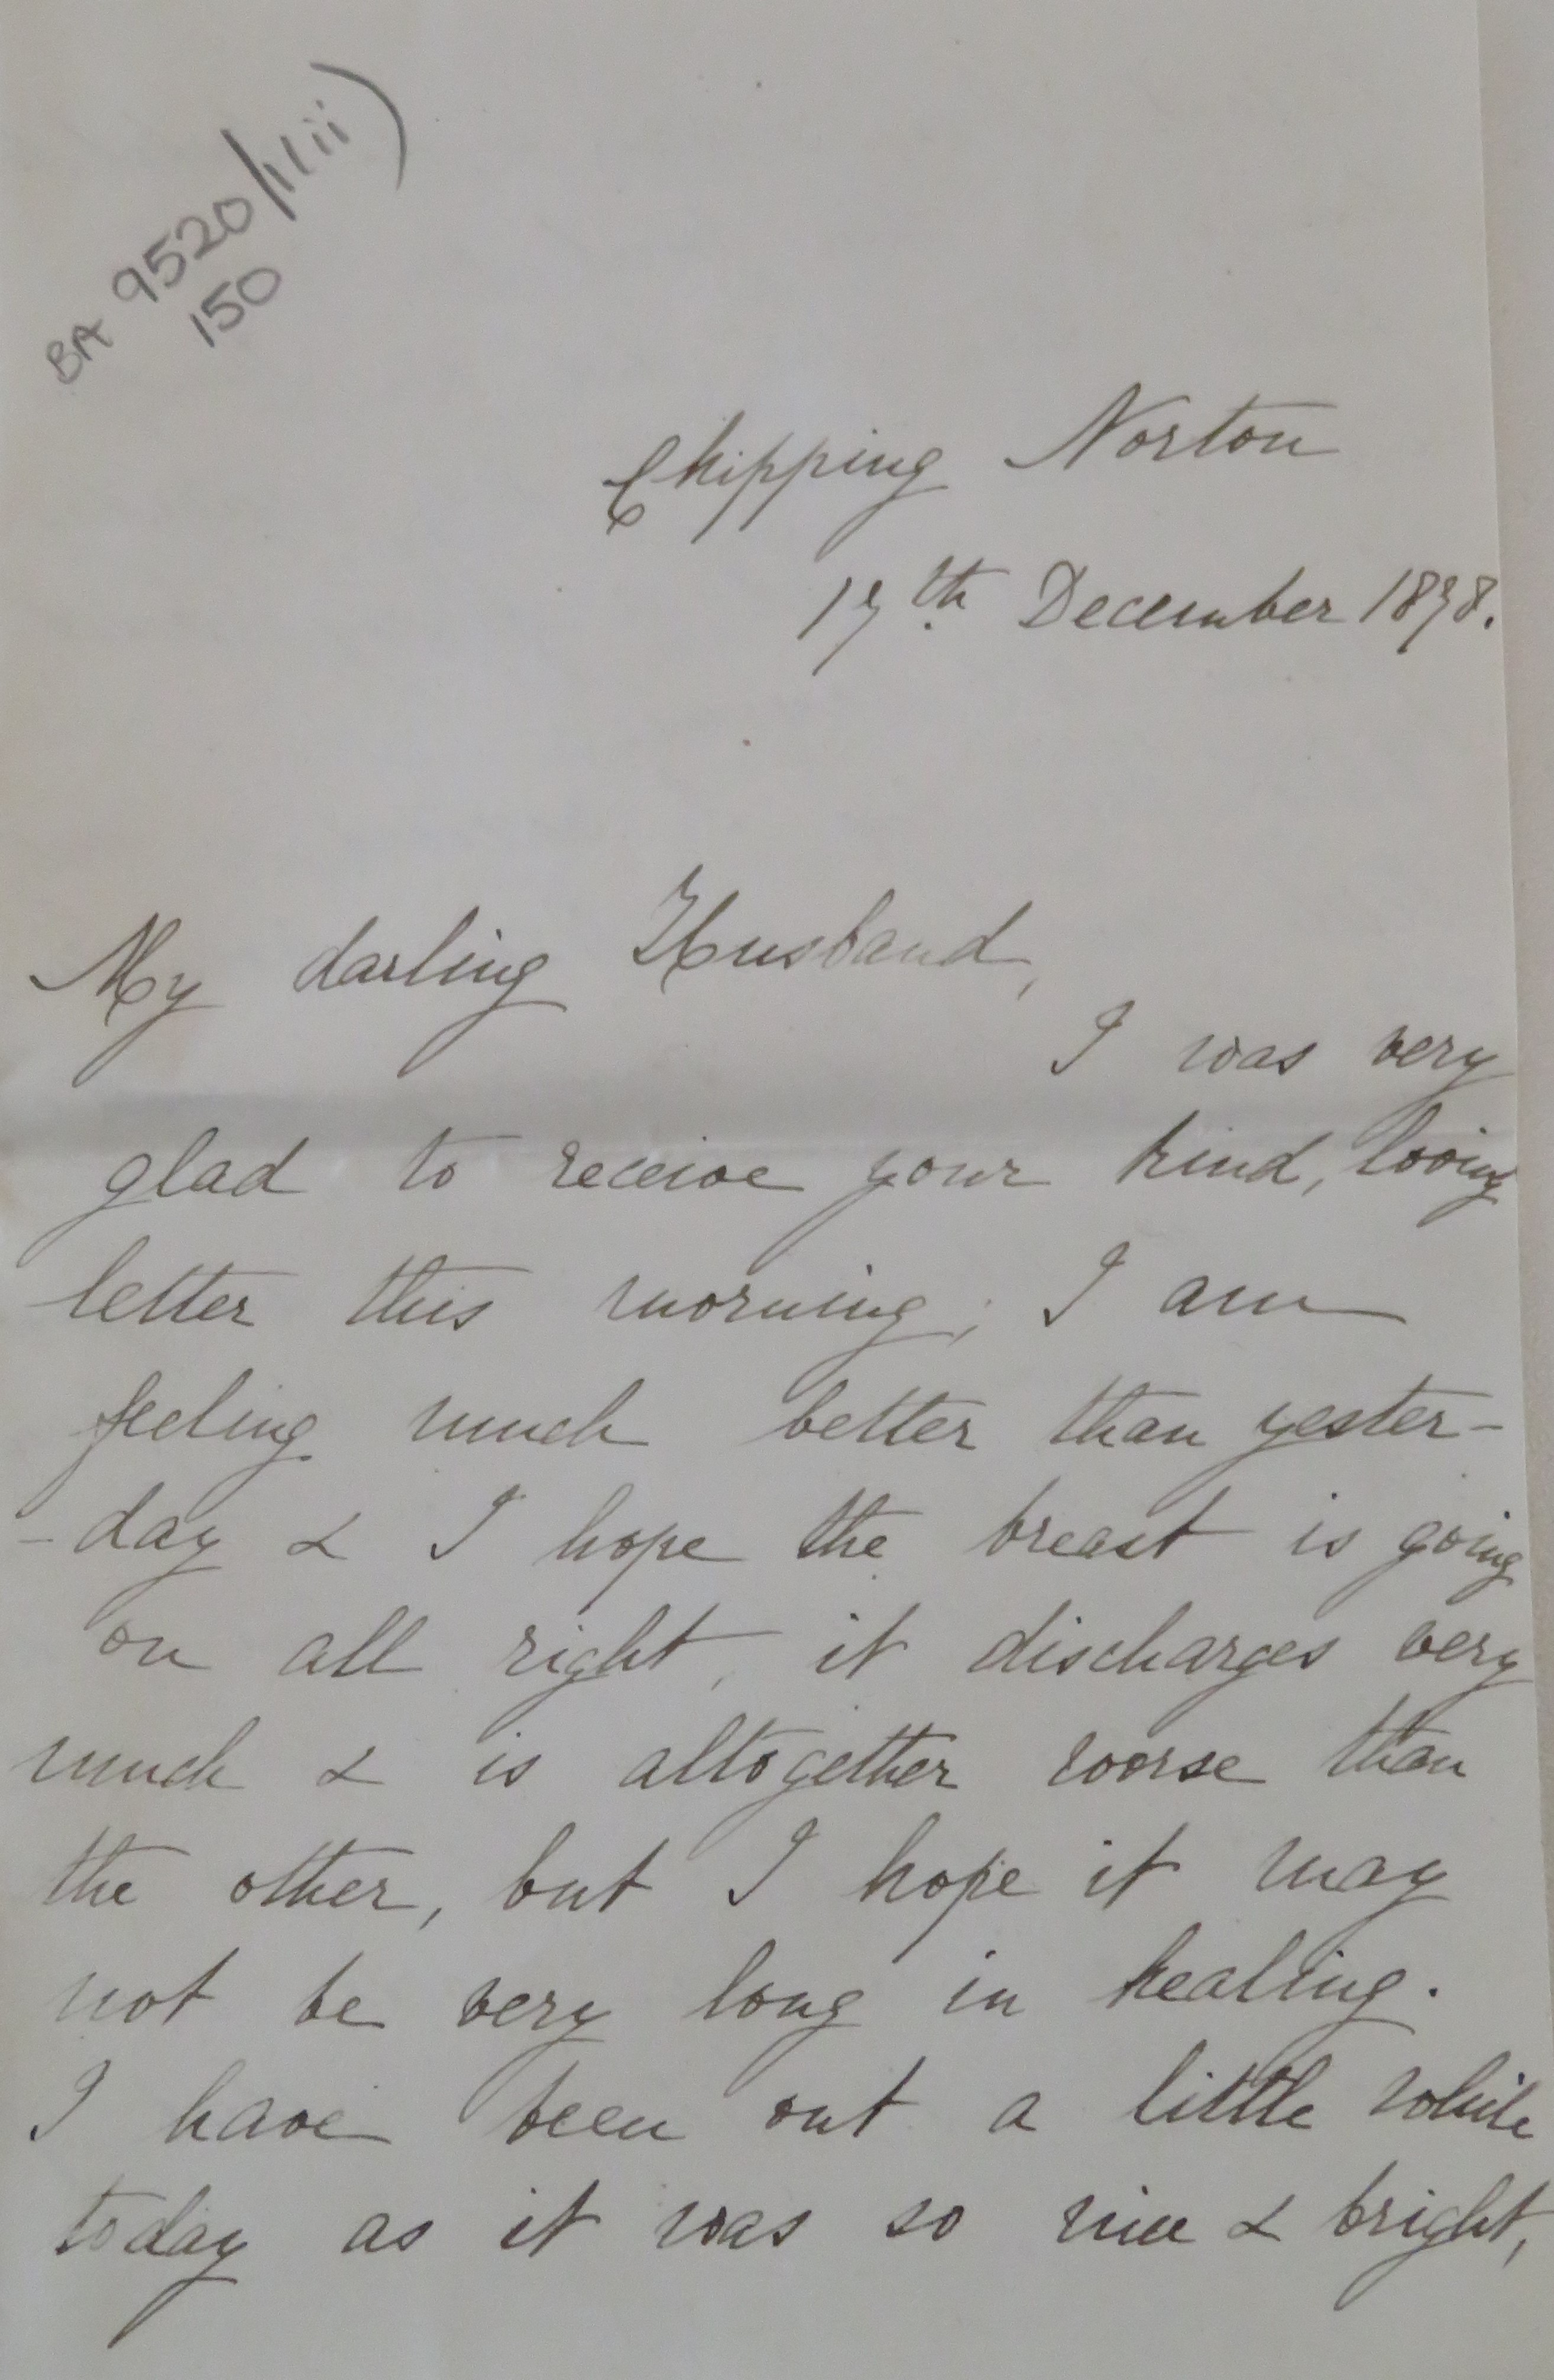 BA 9520/11ii)
150
Chipping Norton
17th December 1878.
My darling Husband,
I was very
glad to receive your kind, loving
letter this morning; I am
feeling much better than yester-
-day & I hope the breast is going
on all right, it discharges very
much & is altogether worse than
the other, but I hope it may
not be very long in healing.
I have been out a little while
today as it was so nice & bright,